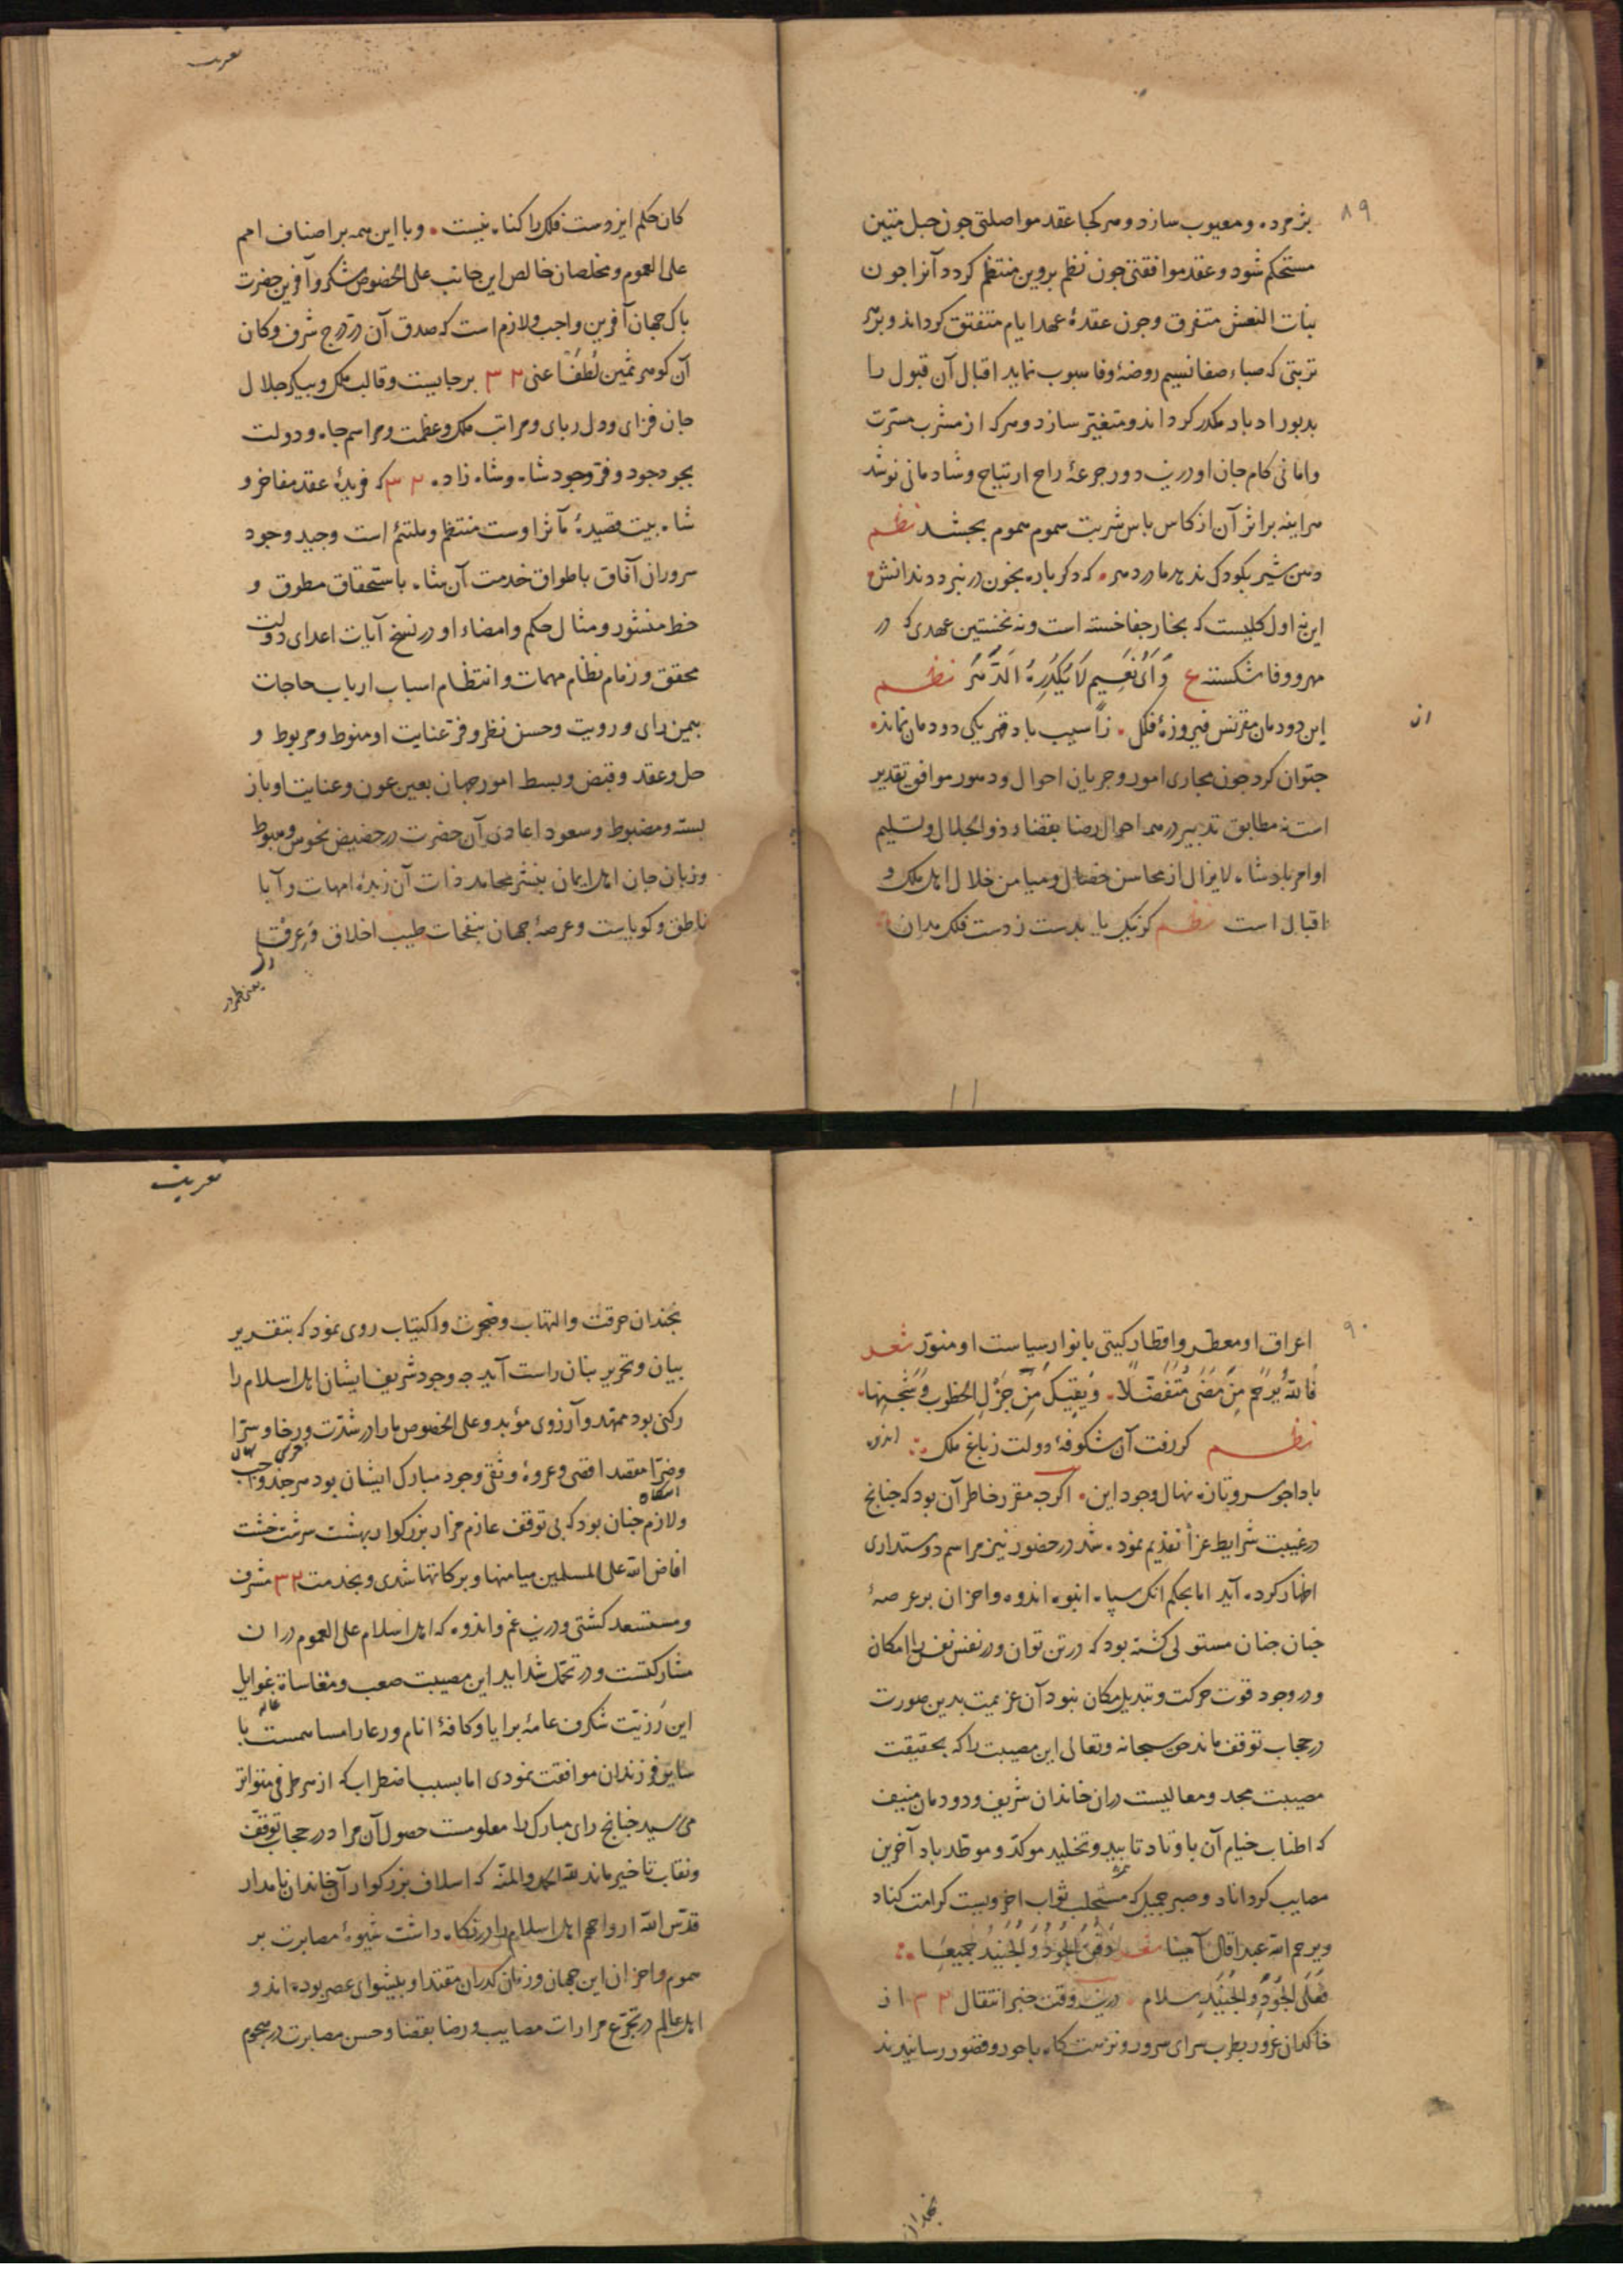 ۸۹
پژمرده و معیوب سازد و هر کجا عقد مواصلتی جون حبل متین
مستحکم شود و عقد موافقتی جون نظم پروین منتظم کردد آنرا جون
بنات النعش متفرق و جون عقدهٔ عهد ایام متفتق کرداند و بر هر
تربتی که صباء صفا نسیم روضهٔ وفا هبوب نماید اقبال آن قبول را
بدبور ادبار مکدر کرداند و متغیر سازد و هر که از مشرب مسرت
و امانی کام جان او درین دور جرعهٔ راح ارتیاح و شادمانی نوشد
هر اینه بر اثر آن از کاس یاس شربت سموم هموم بجشد نظم
دهن شیر بکودک ندهد مادر دهر • که دکر باره بخون در نبرد دندانش
این نه اول کلیست که بخار جفا خسته است و نه نخستین عهدی که در
مهر و وفا شکسته ع وَ اَیُّ نَعِیمٍ لَا یُکَدِّرُهُ الدَّهْرُ نظم
این دودمان مقرنس فیروزهٔ فلک • زآسیب باد قهر یکی دودمان نماند •
از
جتوان کرد جون مجاری امور و جریان احوال و دهور موافق تقدیر
است نه مطابق تدبیر در همه احوال رضا بقضاء ذو الجلال و تسلیم
اوامر پادشاه لایزال از محاسن خصال و میامن خلال اهل ملک و
اقبال است نظم کر نیک یا بدست ز دست فلک مدان
تعزیت
کان حکم ایزدست فلک را کناه نیست • و با این همه بر اصناف امم
علی العموم و مخلصان خالص این جانب علی الخصوص شکر و آفرین حضرت
پاک جهان آفرین واجب و لازم است که صدق آن در درج شرف و کان
آن کوهر ثمین لطفًا عنی ۳۲ بر جایست و قالب ملک و پیکر جلال
جان فزای و دل ربای و مراتب ملک و عظمت و مراسم جاه و دولت
بجود جود و فر وجود شاه و شاه زاده ۳۲ که فریدهٔ عقد مفاخر و
شاه بیت قصیدهٔ مآثر اوست منتظم و ملتئم است و جید وجود
سروران آفاق باطواق خدمت آن شاه باستحقاق مطوق و
خط منشور و مثال حکم و امضاء او در نسخ آیات اعدای دولت
محقق و زمام نظام مهمات و انتظام اسباب ارباب حاجات
بیمن رای و رویت و حسن نظر و فر عنایت او منوط و مربوط و
حل و عقد و قبض و بسط امور جهان بعین عون و عنایت او باز
بسته و مضبوط و سعود اعادی آن حضرت در حضیض نحوس و هبوط
و زبان جان اهل ایمان بنشر محامد ذات آن زبدهٔ امهات و آبا
ناطق و کویاست و عرصهٔ جهان بنفحات طیب اخلاق و عرقات
۹۰
اعراق او معطر و اقطار کیتی بانوار سیاست او منور شعر
فاللهُ یَرْحَمُ مَنْ مَضَی مُتَفَضِّلًا • وَ یَقِیکَ مِنْ جَزْلِ الخطوب وَ
نظم کر رفت آن شکوفهٔ دولت ز باغ ملک
بادا جو سرو تازه نهال وجود این • اکرجه مقرر خاطر آن بود که جنانچ
در غیبت شرایط عزا تقدیم نموده شد در حضور نیز مراسم دوستداری
اظهار کرده آید اما بحکم انک سپاه انبوه اندوه و احزان بر عرصهٔ
جنان جنان مستولی کشته بود که در تن توان و در نفس نفس را امکان
و در وجود قوت حرکت و تبدیل مکان نبود آن عزیمت بدین صورت
در حجاب توقف ماند حق سبحانه و تعالی این مصیبت را که بحقیقت
مصیبت مجد و معالیست در ان خاندان شریف و دودمان منیف
که اطناب خیام آن باوتاد تابید و تخلید موکد و موطد باد آخرین
مصایب کرداناد و صبر جمیل که مستجلب ثواب اخرویست کرامت کناد
و یرحم الله عبدا قال آمینا شعر الجُودُ وَ الجُنَیْدُ جَمِیعًا
فَعَلَی الجُودِ و الجُنَیْدِ سلام • درین وقت خبر انتقال ۳۲ از
خاکدان غرور بطرب سرای سرور و نزهت کاه با حور و قصور رسانیدند
تعزیت
بجندان حرقت و التهاب و ضجرت و اکتیاب روی نمود که بتقریر
بیان و تحریر بنان راست آید جه وجود شریف ایشان اهل اسلام را
رکنی بود ممهد و آرزوی مؤبد و علی الخصوص ما را در شدت و رخا و سرا
و ضرا مقصد اقصی و عروهٔ وثقی وجود مبارک ایشان بود هر جند
و لازم جنان بود که بی توقف عازم مزار بزرکوار بهشت سرشت خشت
افاض الله علی المسلمین میامنها و برکاتها شدی و بخدمت ۳۲ مشرف
و مستسعد کشتی و درین غم و اندوه که اهل اسلام علی العموم در ان
مشارکتست و در تحمل شداید این مصیبت صعب و مقاساة غوایل
این رزیت شکرف عامهٔ برایا و کافهٔ انام و رعا را مساهمست با
سایر فرزندان موافقت نمودی اما بسبب اضطراب که از هر طرفی متواتر
می رسید جنانچ رای مبارک را معلومست حصول آن مراد در حجاب توقف
و نقاب تاخیر ماند لله الحمد و المنه که اسلاف بزرکوار آن خاندان نامدار
قدس الله ارواحهم اهل اسلام را در نکاه داشت شیوهٔ مصابرت بر
هموم و احزان این جهان و زمان کذران مقتدا و پیشوای عصر بوده اند و
اهل عالم در تجرع مرارات مصایب و رضا بقضا و حسن مصابرت در هجوم